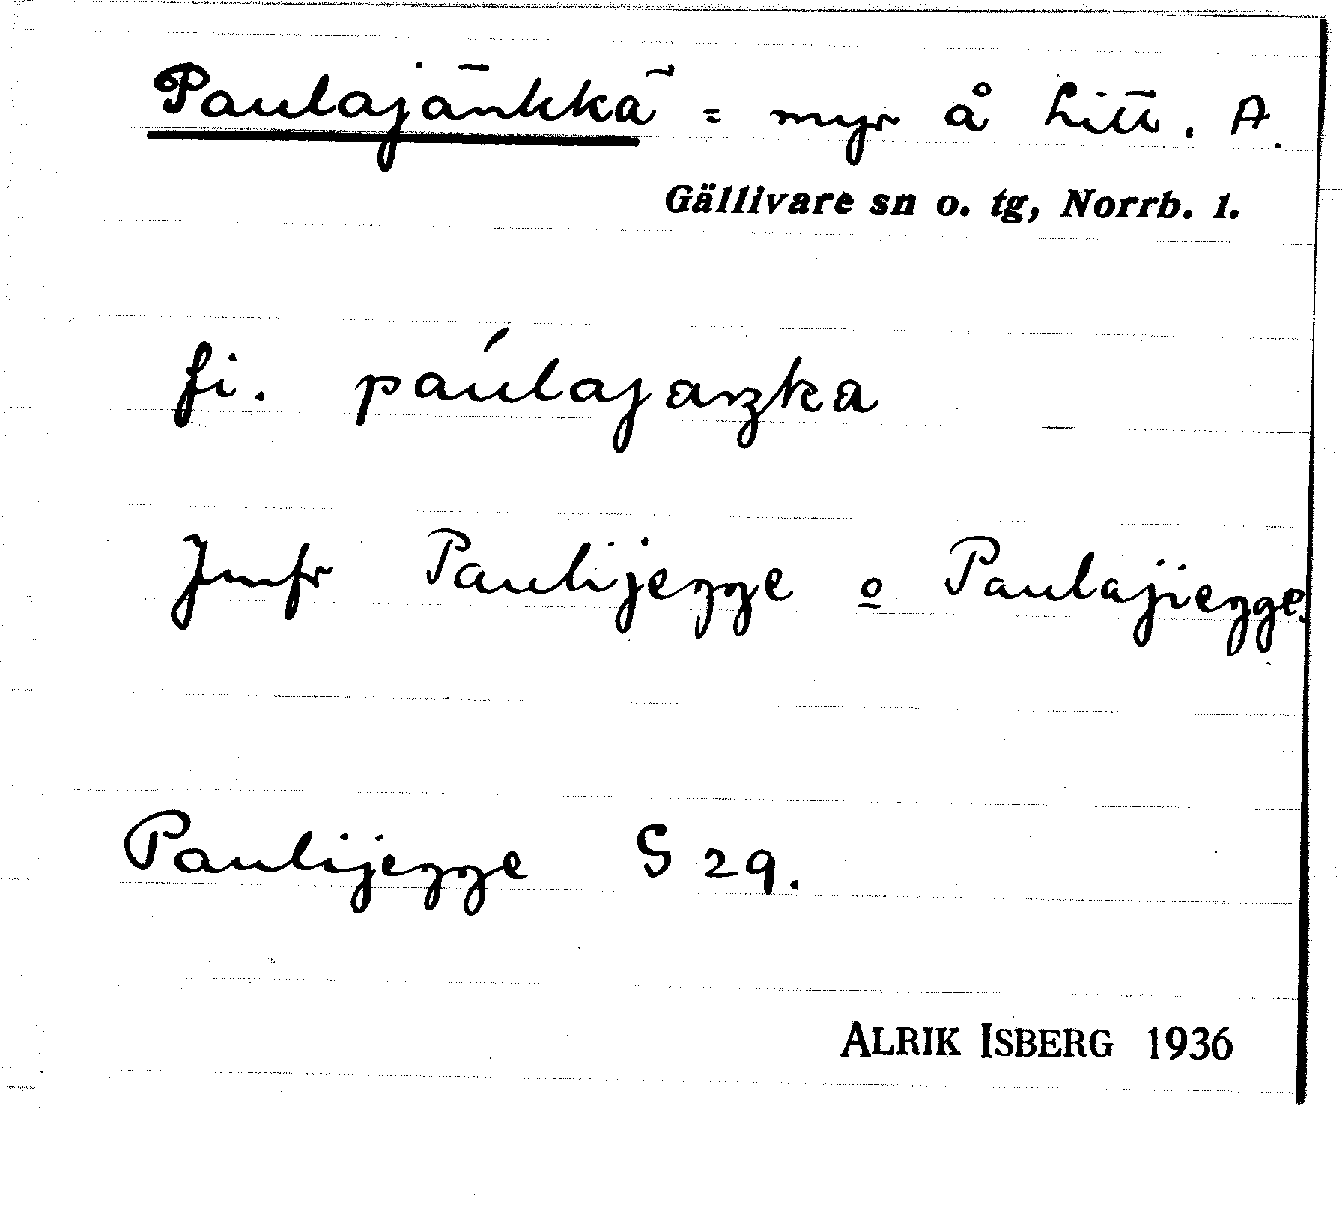 Paulajänkkä = myr å Litt. A.
Gällivare sn o. tg, Norrb. l.
fi. páulajaŋka
Jmfr Paulijegge o Paulajiegge.
Paulijegge S 29.
ALRIK ISBERG 1936